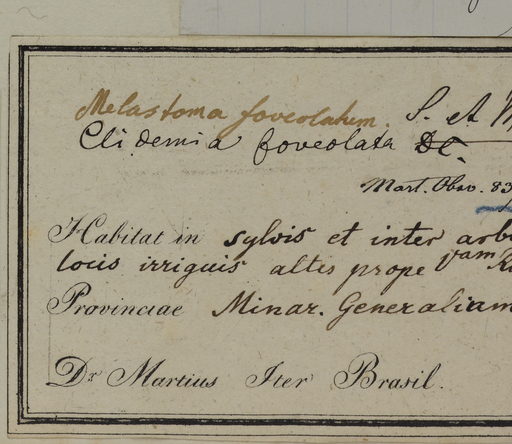 Melastoma foveolatum. S. et M
Clidemia foveolata DC.
Mart. Obsv. 83
Habitat in sylvis et inter arb
locis irriguis altis prope
Provinciae Minar. Generalium
Dr Martius Iter Brasil.